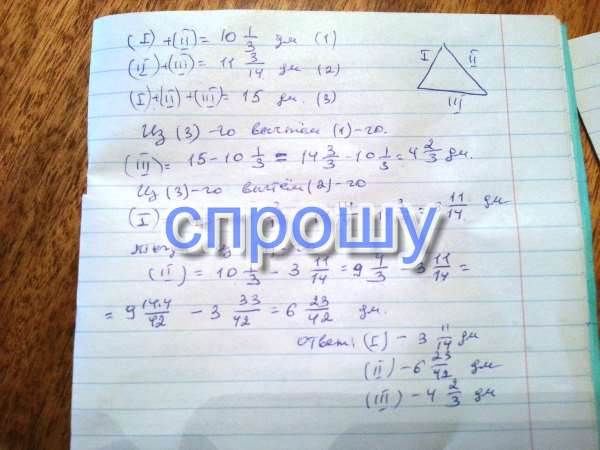 (I) + (II) = 10 1/3 дм (1)
(II) + (III) = 11 3/14 дм (2)
(I) + (II) + (III) = 15 дм. (3)
I II
III
Из (3)-го вычтем (1)-го.
(III) = 15 - 10 1/3 = 14 3/3 - 10 1/3 = 4 2/3 дм.
Из (3)-го вычтем (2)-го
(I) 11/14 дм
спрошу
(II) = 10 1/3 - 3 11/14 = 9 4/3 - 3 11/14 =
= 9 14·4/42 - 3 33/42 = 6 23/42 дм.
Ответ: (I) - 3 11/14 дм
(II) - 6 23/42 дм
(III) - 4 2/3 дм